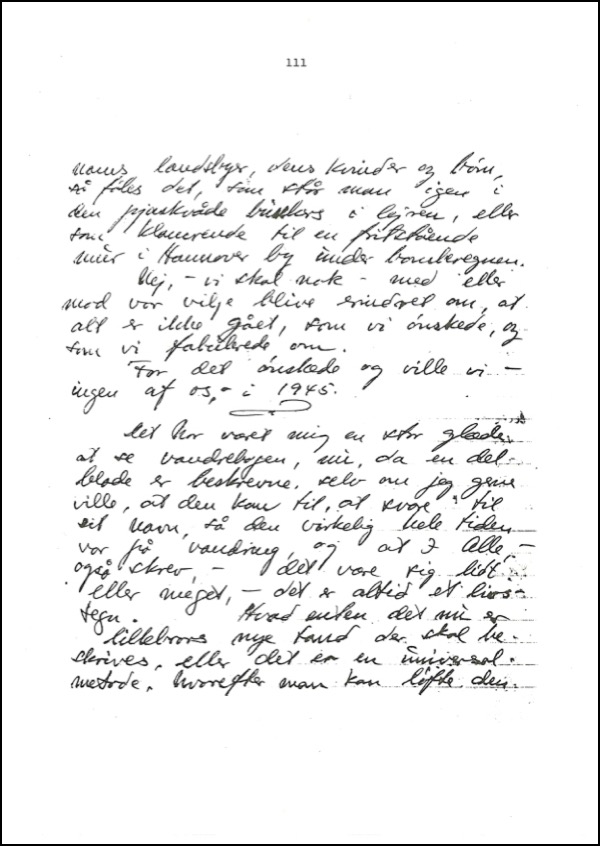 111
nams landsbyer, dens kvinder og børn,
så føles det, som står man igen i
den pjaskvåde bunkers i lejren, eller
som klamrende til en fritstående
mur i Hannover by under bomberegnen.
Nej, - vi skal nok - med eller
mod vor vilje blive erindret om, at
alt er ikke gået, som vi ønskede, og
som vi fabulerede om.
For det ønskede og ville vi -
ingen af os, - i 1945.
Det har været mig en stor glæde,
at se vandrebogen, nu, da en del
blade er beskrevne, selv om jeg gerne
ville, at den kom til, at svare til
sit navn, så den virkelig hele tiden
var på vandring, og at I Alle, -
også skrev, - det være sig lidt
eller meget, - det er altid et livs-
tegn. Hvad enten det nu er
lillebrors nye tand der skal be-
skrives, eller det er en universal-
metode, hvorefter man kan løfte den